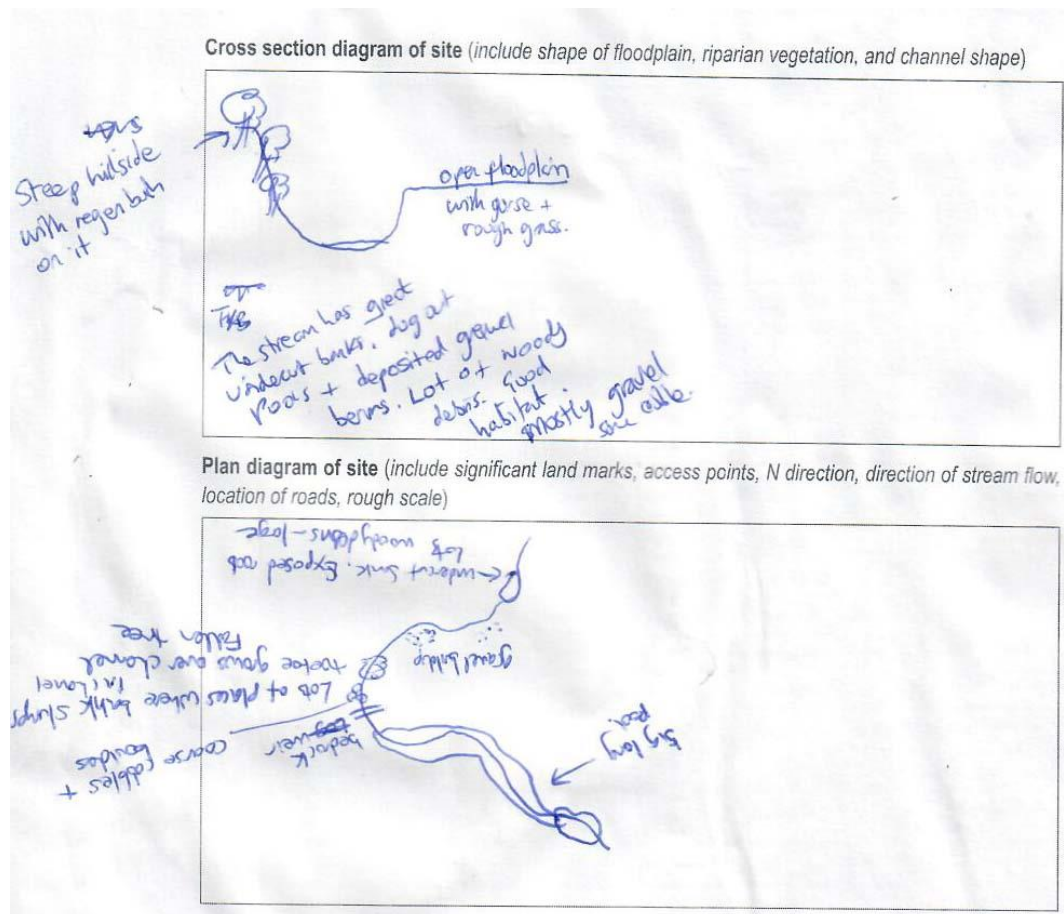 Cross section diagram of site (include shape of floodplain, riparian vegetation, and channel shape)
Steep hillside
with regen bush
on it
open floodplain
with gorse +
rough grass.
The stream has great
undercut banks, dug out
pools + deposited gravel
berms. Lot of woody
debris. Good
habitat
mostly gravel
some cobble.
Plan diagram of site (include significant land marks, access points, N direction, direction of stream flow,
location of roads, rough scale)
undercut bank. Exposed
Lots woody debris - large
gravel buildup
Fallen tree
toetoe grows over channel
Lots of places where bank slumps
in channel
coarse cobbles +
boulders
bedrock
weir
big long
pool